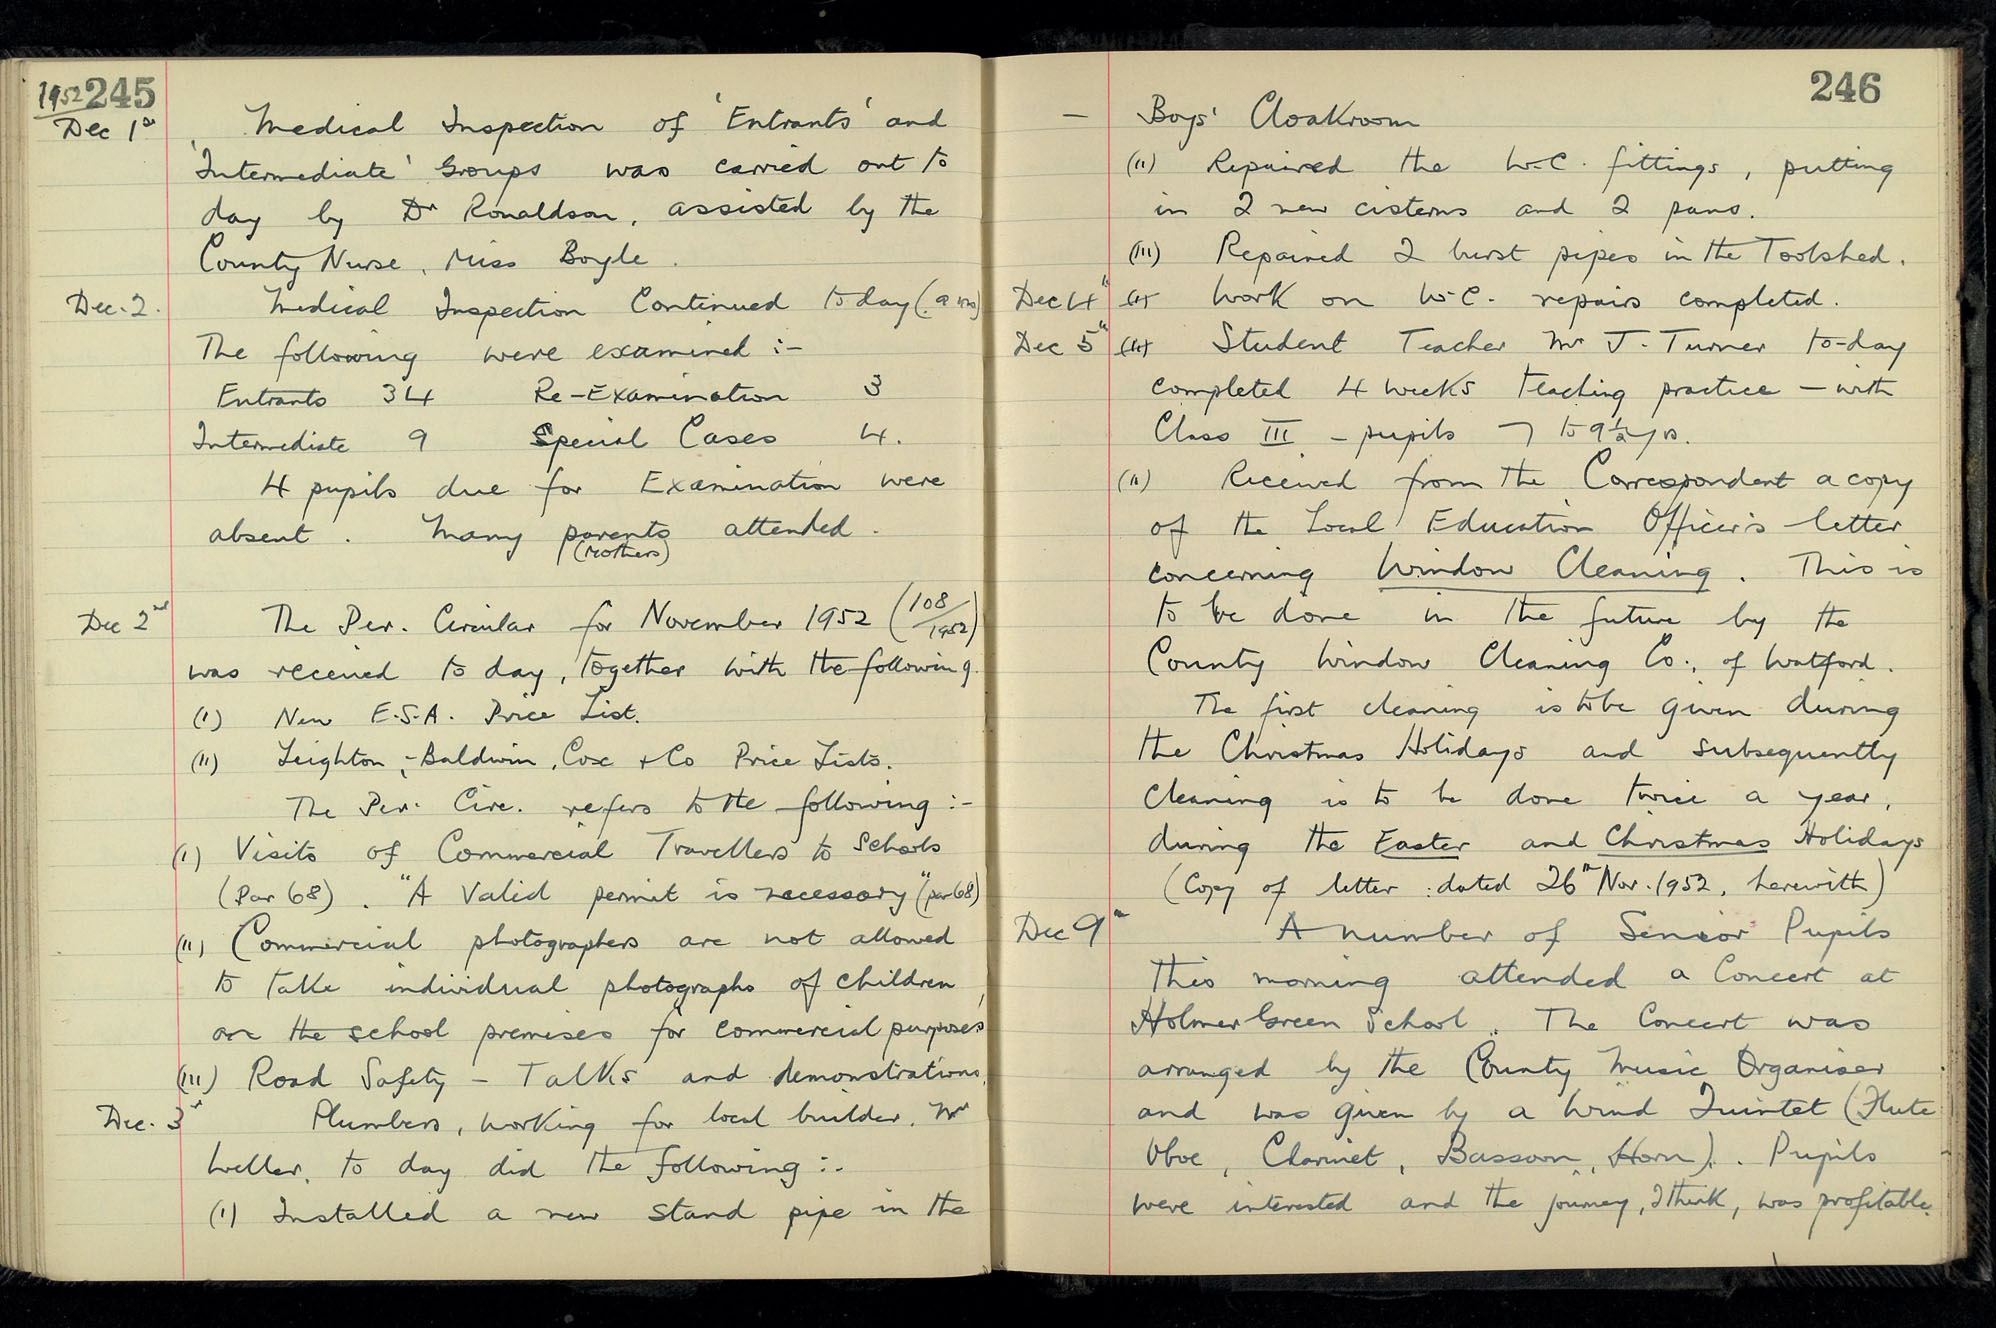 1952 245
Dec 1st Medical Inspection of 'Entrants' and
'Intermediate' Groups was carried out to
day by Dr Ronaldson, assisted by the
County Nurse, Miss Boyle.
Dec. 2. Medical Inspection Continued to day (a.m)
The following were examined :-
Entrants 34 Re-Examination 3
Intermediate 9 Special Cases 4.
4 pupils due for Examination were
absent. Many parents attended.
(mothers)
Dec 2nd The Per. Circular for November 1952 (108/1952)
was received to day, together with the following.
(i) New E.S.A. Price List.
(ii) Leighton-Baldwin, Cox & Co Price Lists.
The Per. Circ. refers to the following :-
(i) Visits of Commercial Travellers to Schools
(Par 68). "A valid permit is necessary" (par 68)
(ii) Commercial photographers are not allowed
to take individual photographs of children,
on the school premises for commercial purposes
(iii) Road Safety - Talks and demonstrations.
Dec. 3rd Plumbers, working for local builder, Mr
Weller, to day did the following :-
(i) Installed a new stand pipe in the
246
— Boys' Cloakroom
(ii) Repaired the W.C. fittings, putting
in 2 new cisterns and 2 pans.
(iii) Repaired 2 burst pipes in the Toolshed.
Dec 4th (i) Work on W.C. repairs completed.
Dec 5th (ii) Student Teacher Mr J. Turner to-day
completed 4 weeks teaching practice — with
Class III - pupils 7 to 9½ yrs.
(ii) Received from the Correspondent a copy
of the Local Education Officer's letter
concerning Window Cleaning. This is
to be done in the future by the
County Window Cleaning Co., of Watford.
The first cleaning is to be given during
the Christmas Holidays and subsequently
cleaning is to be done twice a year,
during the Easter and Christmas Holidays
(Copy of letter dated 26th Nov. 1952, herewith)
Dec 9th A number of Senior Pupils
this morning attended a Concert at
Holmer Green School. The Concert was
arranged by the County Music Organiser
and was given by a Wind Quintet (Flute
Oboe, Clarinet, Bassoon, Horn). Pupils
were interested and the journey, I think, was profitable.